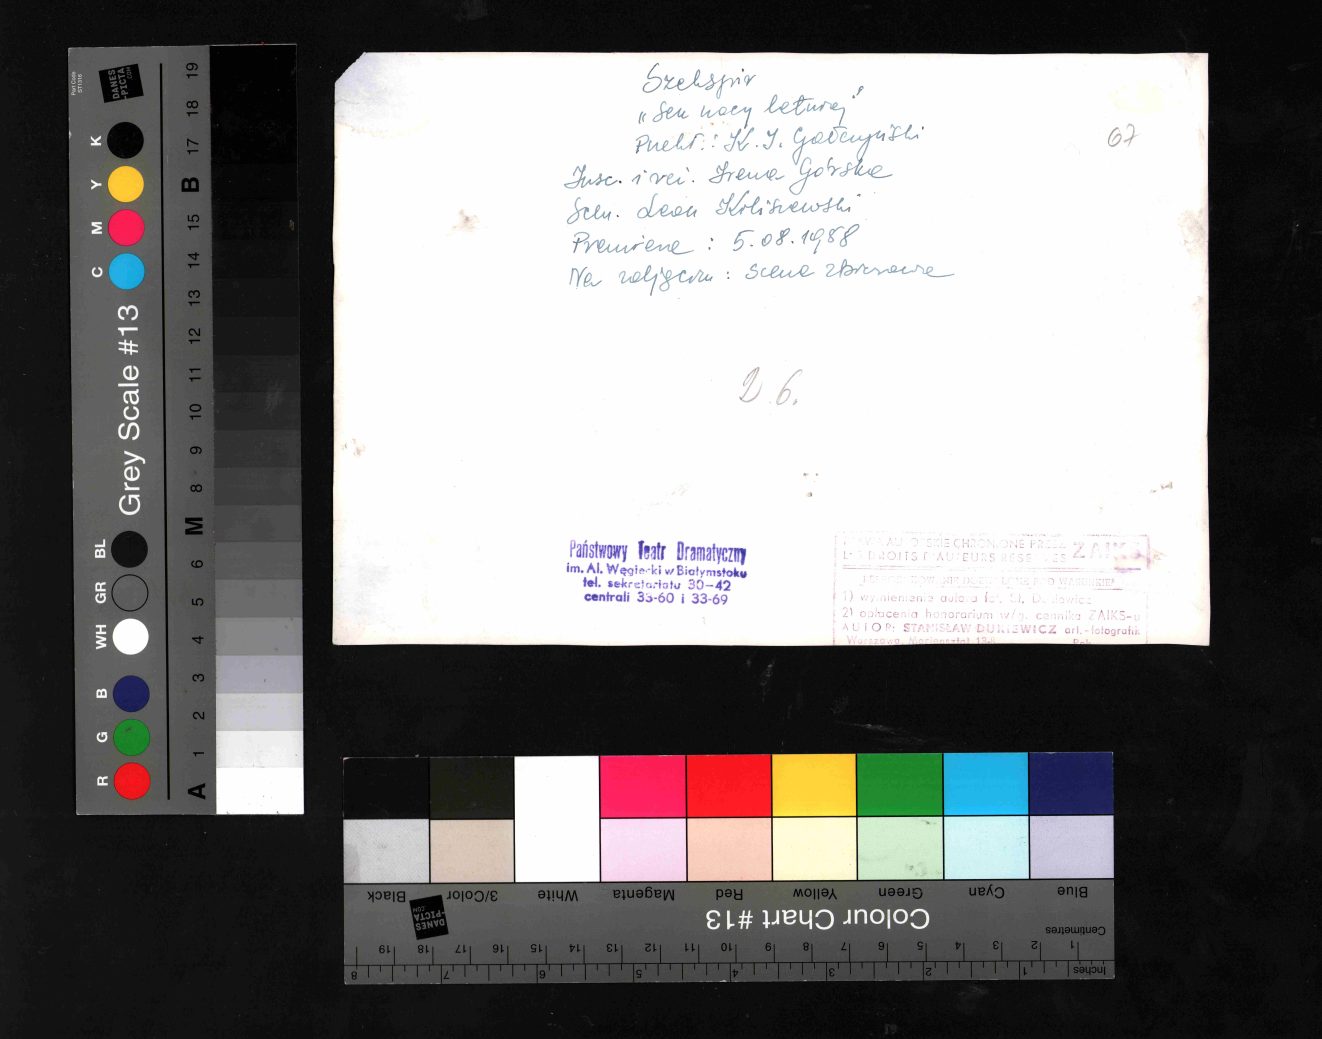 Szekspir
"Sen nocy letniej"
Przekł.: K. I. Gałczyński
Insc. i reż. Irena Górska
Scen. Leon
Premiera: 5.08.1988
Na zdjęciu: scena zbiorowa
07
26.
Państwowy Teatr Dramatyczny
im. Al. Węgierki w Białymstoku
tel. sekretariatu 30-42
centrali 33-60 i 33-69
CHRONIONE PRZEZ ZAIKS
LES DROITS D'AUTEURS RESERVES
1) wymienienie autora fot. St.
2) opłacenia honorarium wg. cennika ZAIKS-u
AUTOR: STANISŁAW art.-fotografik
Warszawa, Mariensztat
Part Code
ST1316
DANES
-PICTA
.COM
Grey Scale #13
R G B WH GR BL C M Y K
A 1 2 3 4 5 6 M 8 9 10 11 12 13 14 15 B 17 18 19
Colour Chart #13
Blue Cyan Green Yellow Red Magenta White 3/Color Black
DANES
-PICTA
.COM
Centimetres
1 2 3 4 5 6 7 8 9 10 11 12 13 14 15 16 17 18 19
Inches 1 2 3 4 5 6 7 8